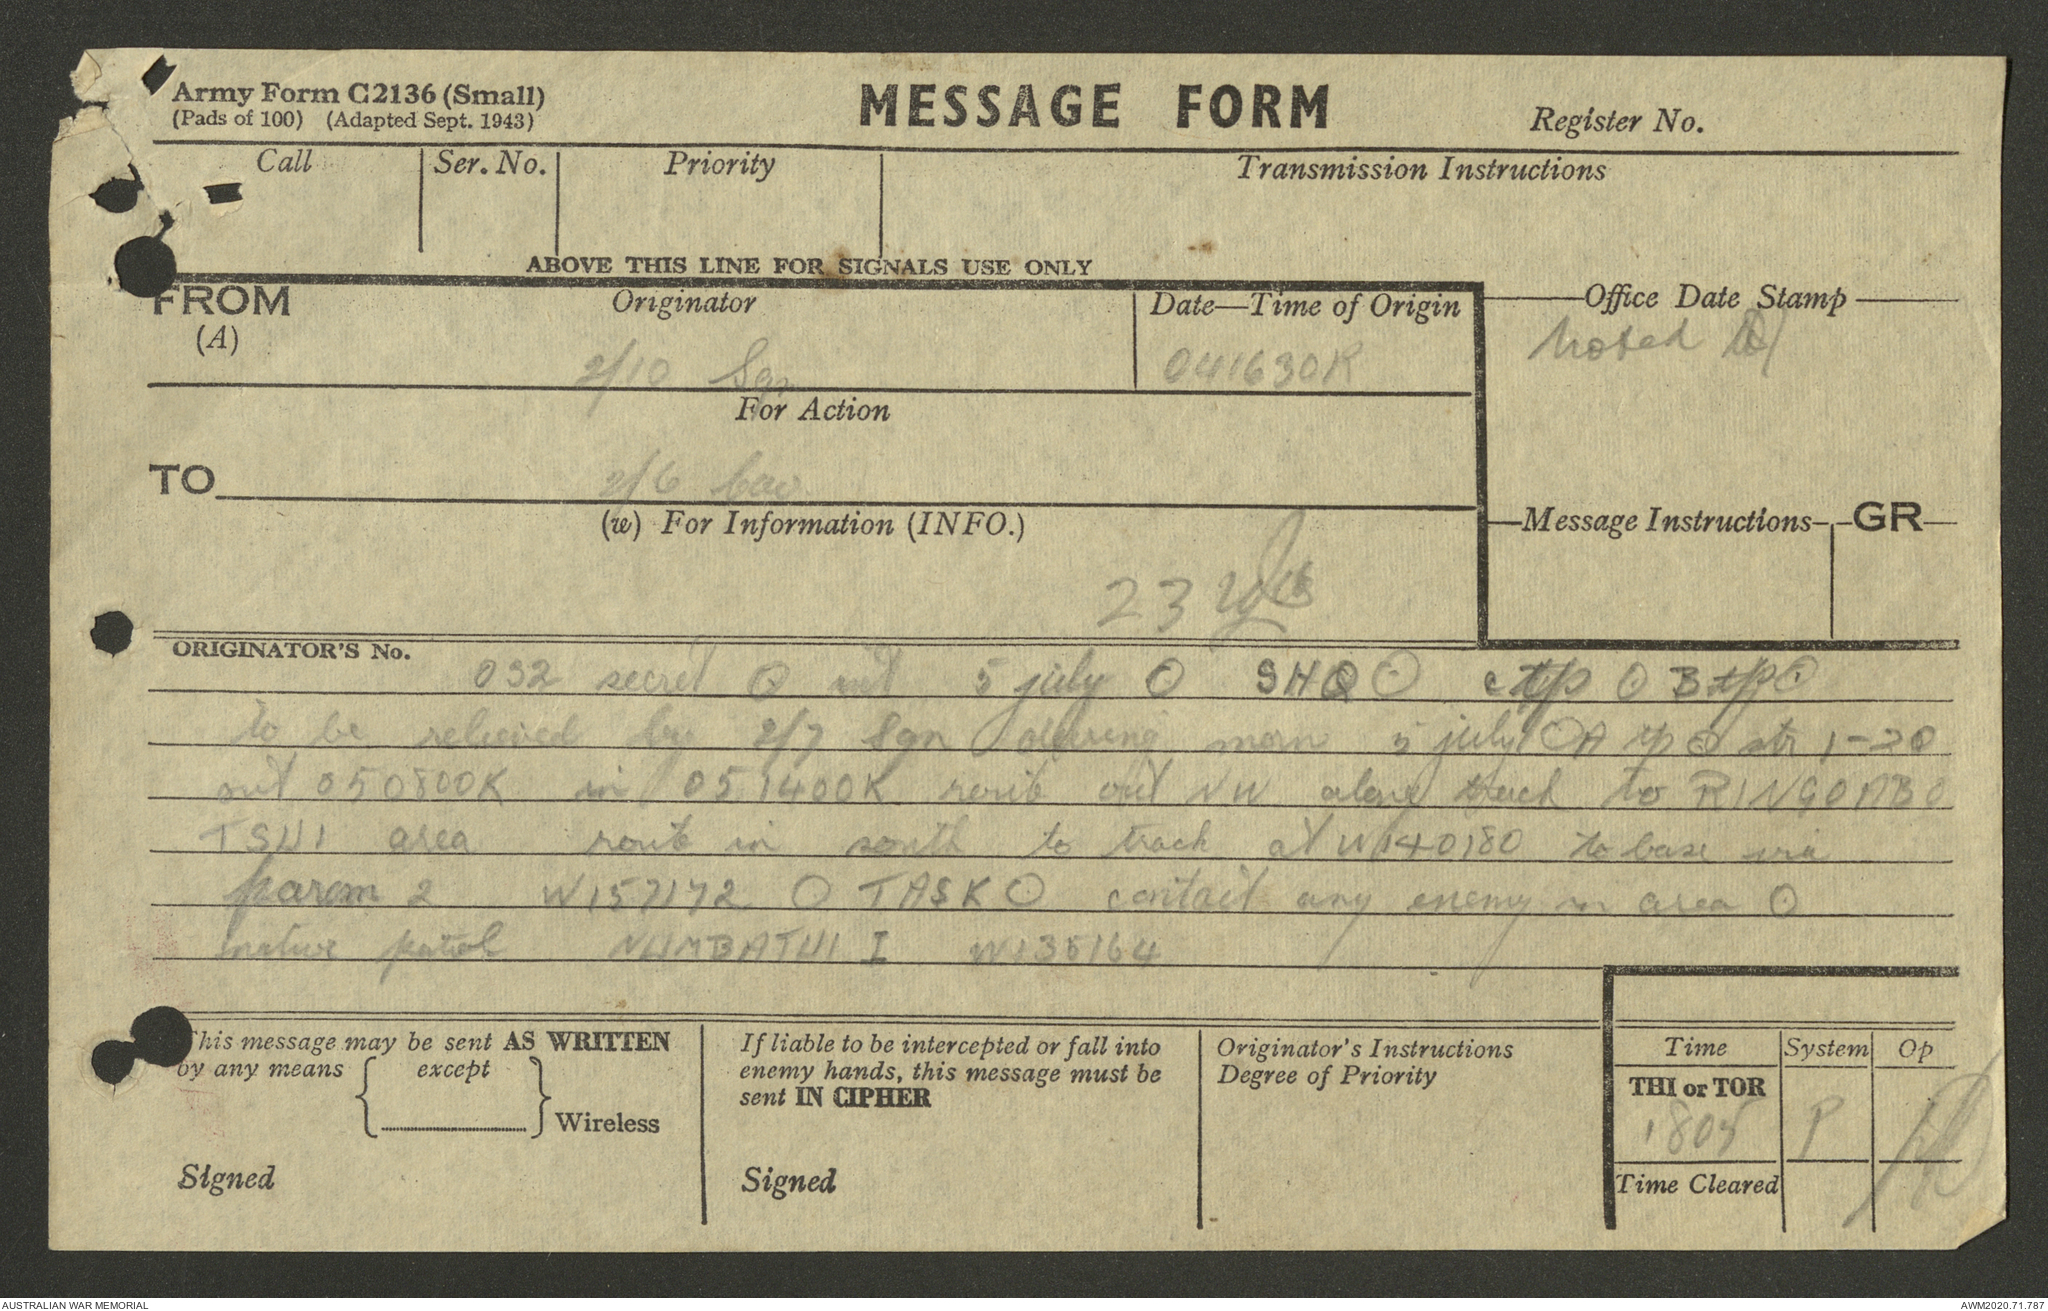 Army Form C2136 (Small)
(Pads of 100) (Adapted Sept. 1943)
MESSAGE FORM
Register No.
Call
Ser. No.
Priority
Transmission Instructions
ABOVE THIS LINE FOR SIGNALS USE ONLY
FROM
(A)
Originator
2/10 Sqn
Date—Time of Origin
041630K
Office Date Stamp
Noted
For Action
TO
2/6 Cav
(w) For Information (INFO.)
23
Message Instructions
GR
ORIGINATOR'S No.
032 secret O int 5 july O SHQ O C tp O B tp O
to be relieved by 2/7 Sqn during morn 5 july O A tp O str 1-20
out 050800K in 051400K route out NW along track to RINGOMBO
TSHI area route in south to track at W140180 to base via
parom 2 W157172 O TASK O contact any enemy in area O
native patrol NUMBATHI I W135164
This message may be sent AS WRITTEN
by any means except
Wireless
Signed
If liable to be intercepted or fall into
enemy hands, this message must be
sent IN CIPHER
Signed
Originator's Instructions
Degree of Priority
Time
System
Op
THI or TOR
1805
P
Time Cleared
AUSTRALIAN WAR MEMORIAL
AWM2020.71.787